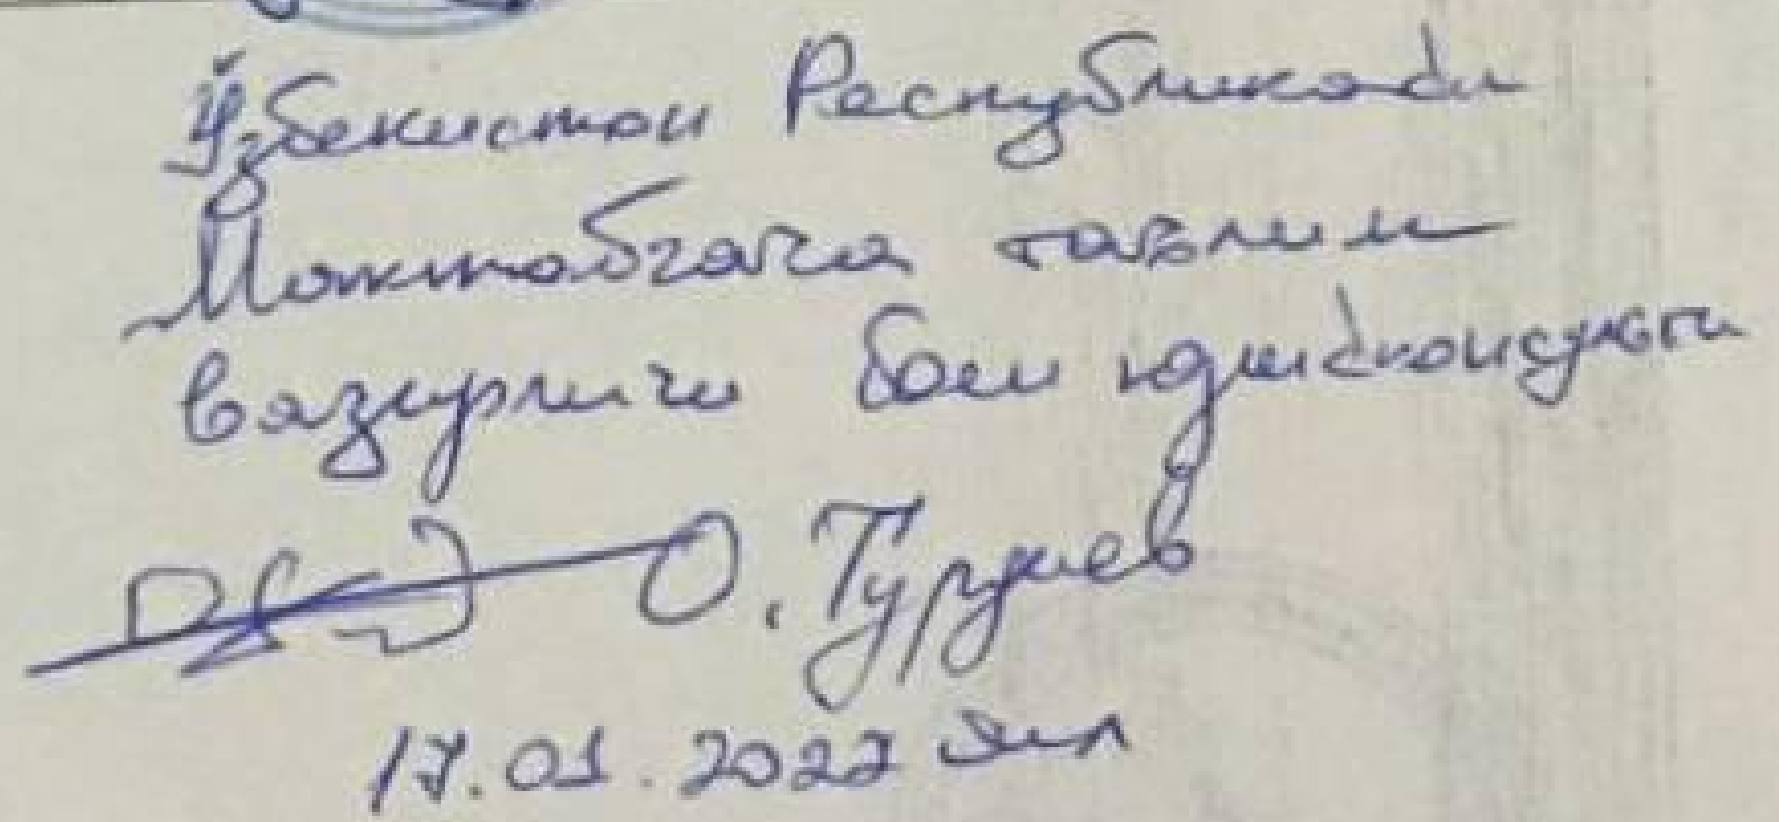 Ўзбекистон Республикаси
Мактабгача таълим
вазирлиги бош юрисконсульти
О. Турдиев
17.01.2022 йил